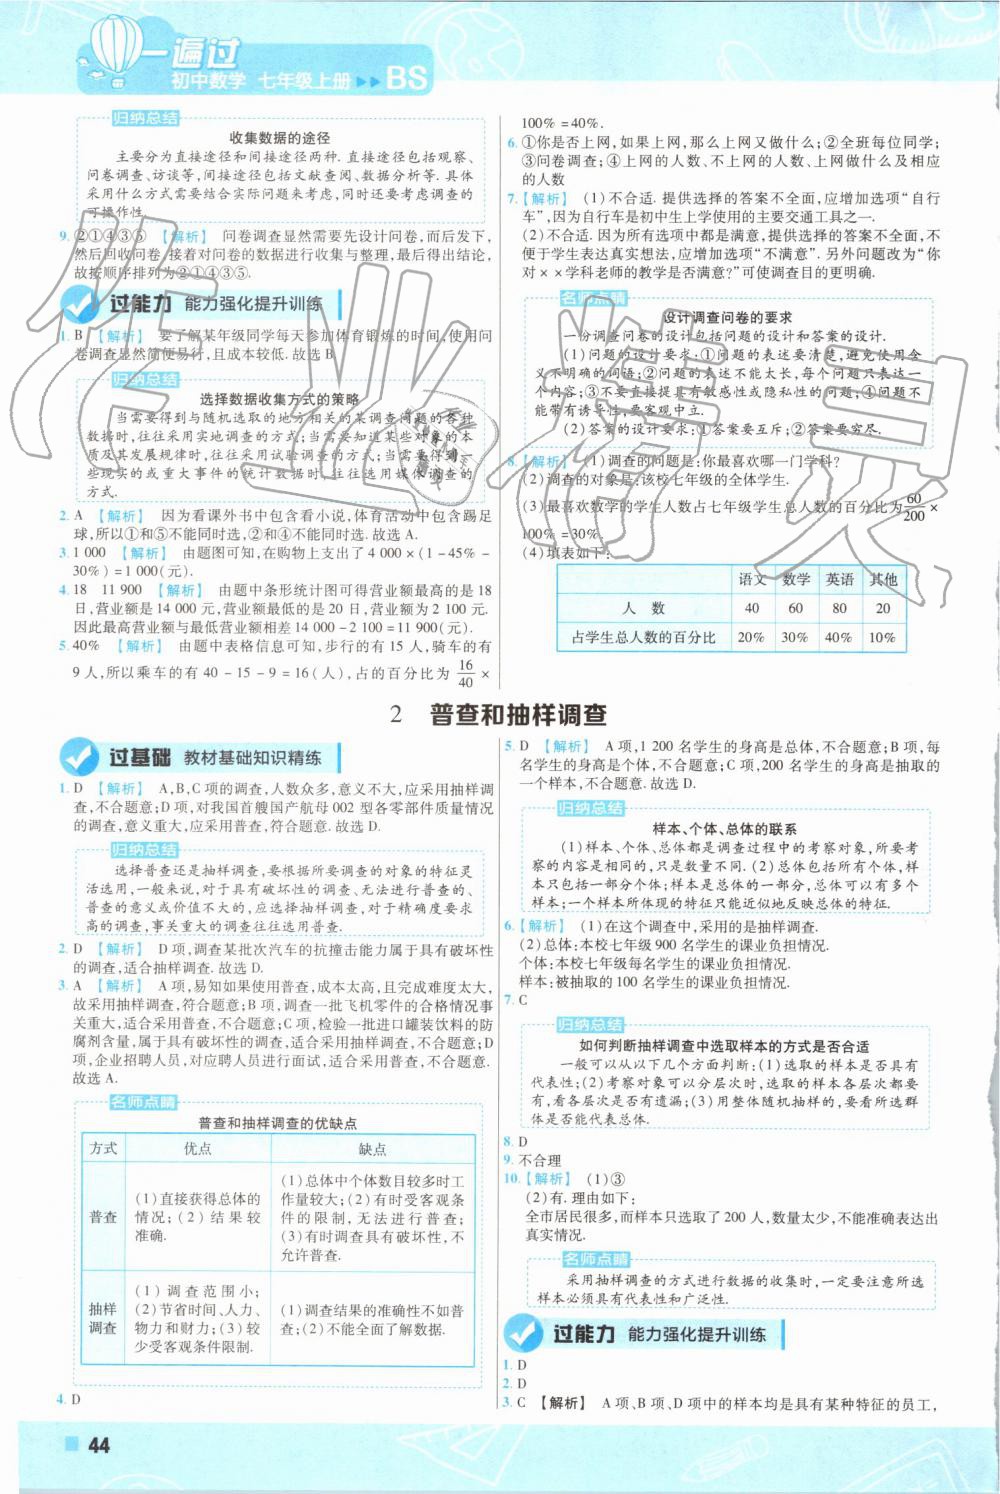 一遍过
初中数学 七年级上册 ▶▶ BS
归纳总结
收集数据的途径
主要分为直接途径和间接途径两种. 直接途径包括观察、
问卷调查、访谈等,间接途径包括文献查阅、数据分析等. 具体
采用什么方式需要结合实际问题来考虑,同时还要考虑调查的
可操作性.
9. ②①④③⑤ 【解析】 问卷调查显然需要先设计问卷,而后发下,
然后回收问卷,接着对问卷的数据进行收集与整理,最后得出结论,
故按顺序排列为②①④③⑤.
过能力 能力强化提升训练
1. B 【解析】 要了解某年级同学每天参加体育锻炼的时间,使用问
卷调查显然简便易行,且成本较低. 故选 B.
归纳总结
选择数据收集方式的策略
当需要得到与随机选取的地方相关的某调查问题的各种
数据时,往往采用实地调查的方式;当需要知道某些对象的本
质及其发展规律时,往往采用试验调查的方式;当需要得到一
些现实的或重大事件的统计数据时,往往选用媒体调查的
方式.
2. A 【解析】 因为看课外书中包含看小说,体育活动中包含踢足
球,所以①和⑤不能同时选,②和④不能同时选. 故选 A.
3. 1 000 【解析】 由题图可知,在购物上支出了 4 000 ×(1 - 45% -
30%) = 1 000(元).
4. 18 11 900 【解析】 由题中条形统计图可得营业额最高的是 18
日,营业额是 14 000 元,营业额最低的是 20 日,营业额为 2 100 元.
因此最高营业额与最低营业额相差 14 000 - 2 100 = 11 900(元).
5. 40% 【解析】 由题中表格信息可知,步行的有 15 人,骑车的有
9 人,所以乘车的有 40 - 15 - 9 = 16(人),占的百分比为 16/40 ×
100% = 40%.
6. ①你是否上网,如果上网,那么上网又做什么;②全班每位同学;
③问卷调查;④上网的人数、不上网的人数、上网做什么及相应
的人数
7. 【解析】 (1)不合适. 提供选择的答案不全面,应增加选项“自行
车”,因为自行车是初中生上学使用的主要交通工具之一.
(2)不合适. 因为所有选项中都是满意,提供选择的答案不全面,不
便于学生表达真实想法,应增加选项“不满意”. 另外问题改为“你
对 × × 学科老师的教学是否满意?”可使调查目的更明确.
名师点睛
设计调查问卷的要求
一份调查问卷的设计包括问题的设计和答案的设计.
(1)问题的设计要求:①问题的表达要清楚,避免使用含
义不明确的词语;②问题的表述不能太长,每个问题只表达一
个内容;③不要直接提具有敏感性或隐私性的问题;④问题不
能带有诱导性,要客观中立.
(2)答案的设计要求:①答案要互斥;②答案要穷尽.
8. 【解析】 (1)调查的问题是:你最喜欢哪一门学科?
(2)调查的对象是:该校七年级的全体学生.
(3)最喜欢数学的学生人数占七年级学生总人数的百分比为 60/200 ×
100% = 30%.
(4)填表如下:
语文 数学 英语 其他
人 数 40 60 80 20
占学生总人数的百分比 20% 30% 40% 10%
2 普查和抽样调查
过基础 教材基础知识精练
1. D 【解析】 A,B,C 项的调查,人数众多,意义不大,应采用抽样调
查,不合题意;D 项,对我国首艘国产航母 002 型各零部件质量情况
的调查,意义重大,应采用普查,符合题意. 故选 D.
归纳总结
选择普查还是抽样调查,要根据所要调查的对象的特征灵
活选用,一般来说,对于具有破坏性的调查、无法进行普查的、
普查的意义或价值不大的,应选择抽样调查,对于精确度要求
高的调查,事关重大的调查往往选用普查.
2. D 【解析】 D 项,调查某批次汽车的抗撞击能力属于具有破坏性
的调查,适合抽样调查. 故选 D.
3. A 【解析】 A 项,易知如果使用普查,成本太高,且完成难度太大,
故采用抽样调查,符合题意;B 项,调查一批飞机零件的合格情况事
关重大,适合采用普查,不合题意;C 项,检验一批进口罐装饮料的防
腐剂含量,属于具有破坏性的调查,适合采用抽样调查,不合题意;D
项,企业招聘人员,对应聘人员进行面试,适合采用普查,不合题意.
故选 A.
名师点睛
普查和抽样调查的优缺点
方式 优点 缺点
普查
(1)直接获得总体的
情况;(2)结果较
准确.
(1)总体中个体数目较多时工
作量较大;(2)有时受客观条
件的限制,无法进行普查;
(3)有时调查具有破坏性,不
允许普查.
抽样
调查
(1)调查范围小;
(2)节省时间、人力、
物力和财力;(3)较
少受客观条件限制.
(1)调查结果的准确性不如普
查;(2)不能全面了解数据.
4. D
5. D 【解析】 A 项,1 200 名学生的身高是总体,不合题意;B 项,每
名学生的身高是个体,不合题意;C 项,200 名学生的身高是抽取的
一个样本,不合题意. 故选 D.
归纳总结
样本、个体、总体的联系
(1)样本、个体、总体都是调查过程中的考察对象,所要考
察的内容是相同的,只是数量不同. (2)总体包括所有个体,样
本只包括一部分个体;样本是总体的一部分,总体可以有多个
样本;一个样本所体现的特征只能近似地反映总体的特征.
6. 【解析】 (1)在这个调查中,采用的是抽样调查.
(2)总体:本校七年级 900 名学生的课业负担情况.
个体:本校七年级每名学生的课业负担情况.
样本:被抽取的 100 名学生的课业负担情况.
7. C
归纳总结
如何判断抽样调查中选取样本的方式是否合适
一般可以从以下几个方面判断:(1)选取的样本是否具有
代表性;(2)考察对象可以分层次时,选取的样本各层次都要
有,看各层次是否有遗漏;(3)用整体随机抽样的,要看所选群
体是否能代表总体.
8. D
9. 不合理
10. 【解析】 (1)③
(2)有. 理由如下:
全市居民很多,而样本只选取了 200 人,数量太少,不能准确表达出
真实情况.
名师点睛
采用抽样调查的方式进行数据的收集时,一定要注意所选
样本必须具有代表性和广泛性.
过能力 能力强化提升训练
1. D
2. D
3. C 【解析】 A 项、B 项、D 项中的样本均是具有某种特征的员工,
44